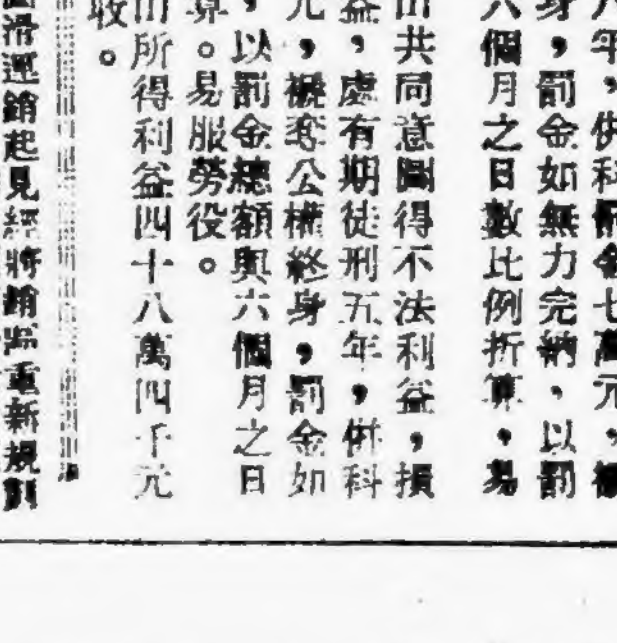 年,併科罰金七萬元,褫
身,罰金如無力完納、以罰
六個月之日數比例折算,易
共同意圖得不法利益,損
益,處有期徒刑五年,併科
元,褫奪公權終身,罰金如
,以罰金總額與六個月之日
算。易服勞役。
所得利益四十八萬四千元
收。
滑運銷起見經將銷點重新規劃